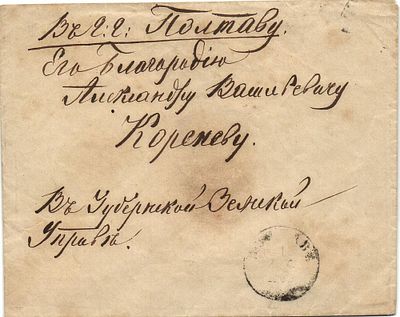 Въ г: г: Полтаву.
Его Благородію
Александру Васильевичу
Кореневу.
Въ Губернской Земской
Управѣ.